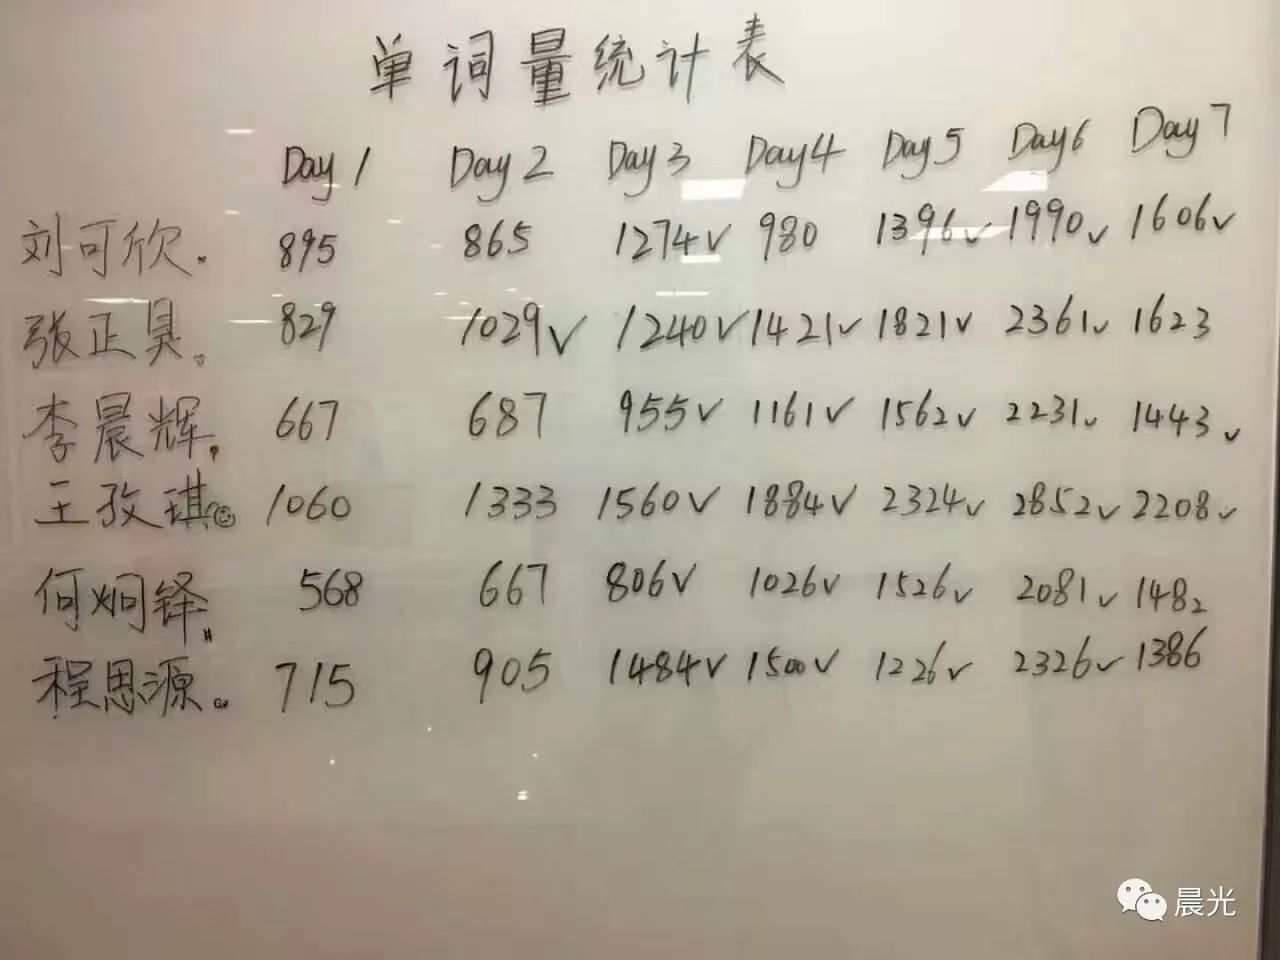 单词量统计表
Day 1 Day 2 Day 3 Day4 Day 5 Day6 Day 7
刘可欣. 895 865 1274✓ 980 1396✓ 1990✓ 1606✓
张正昊。 829 1029✓ 1240✓ 1421✓ 1821✓ 2361✓ 1623
李晨辉 667 687 955✓ 1161✓ 1562✓ 2231✓ 1443✓
王孜琪 1060 1333 1560✓ 1884✓ 2324✓ 2852✓ 2208✓
何炯铎 568 667 806✓ 1026✓ 1526✓ 2081✓ 1482
程思源。 715 905 1484✓ 1500✓ 1226✓ 2326✓ 1386
晨光